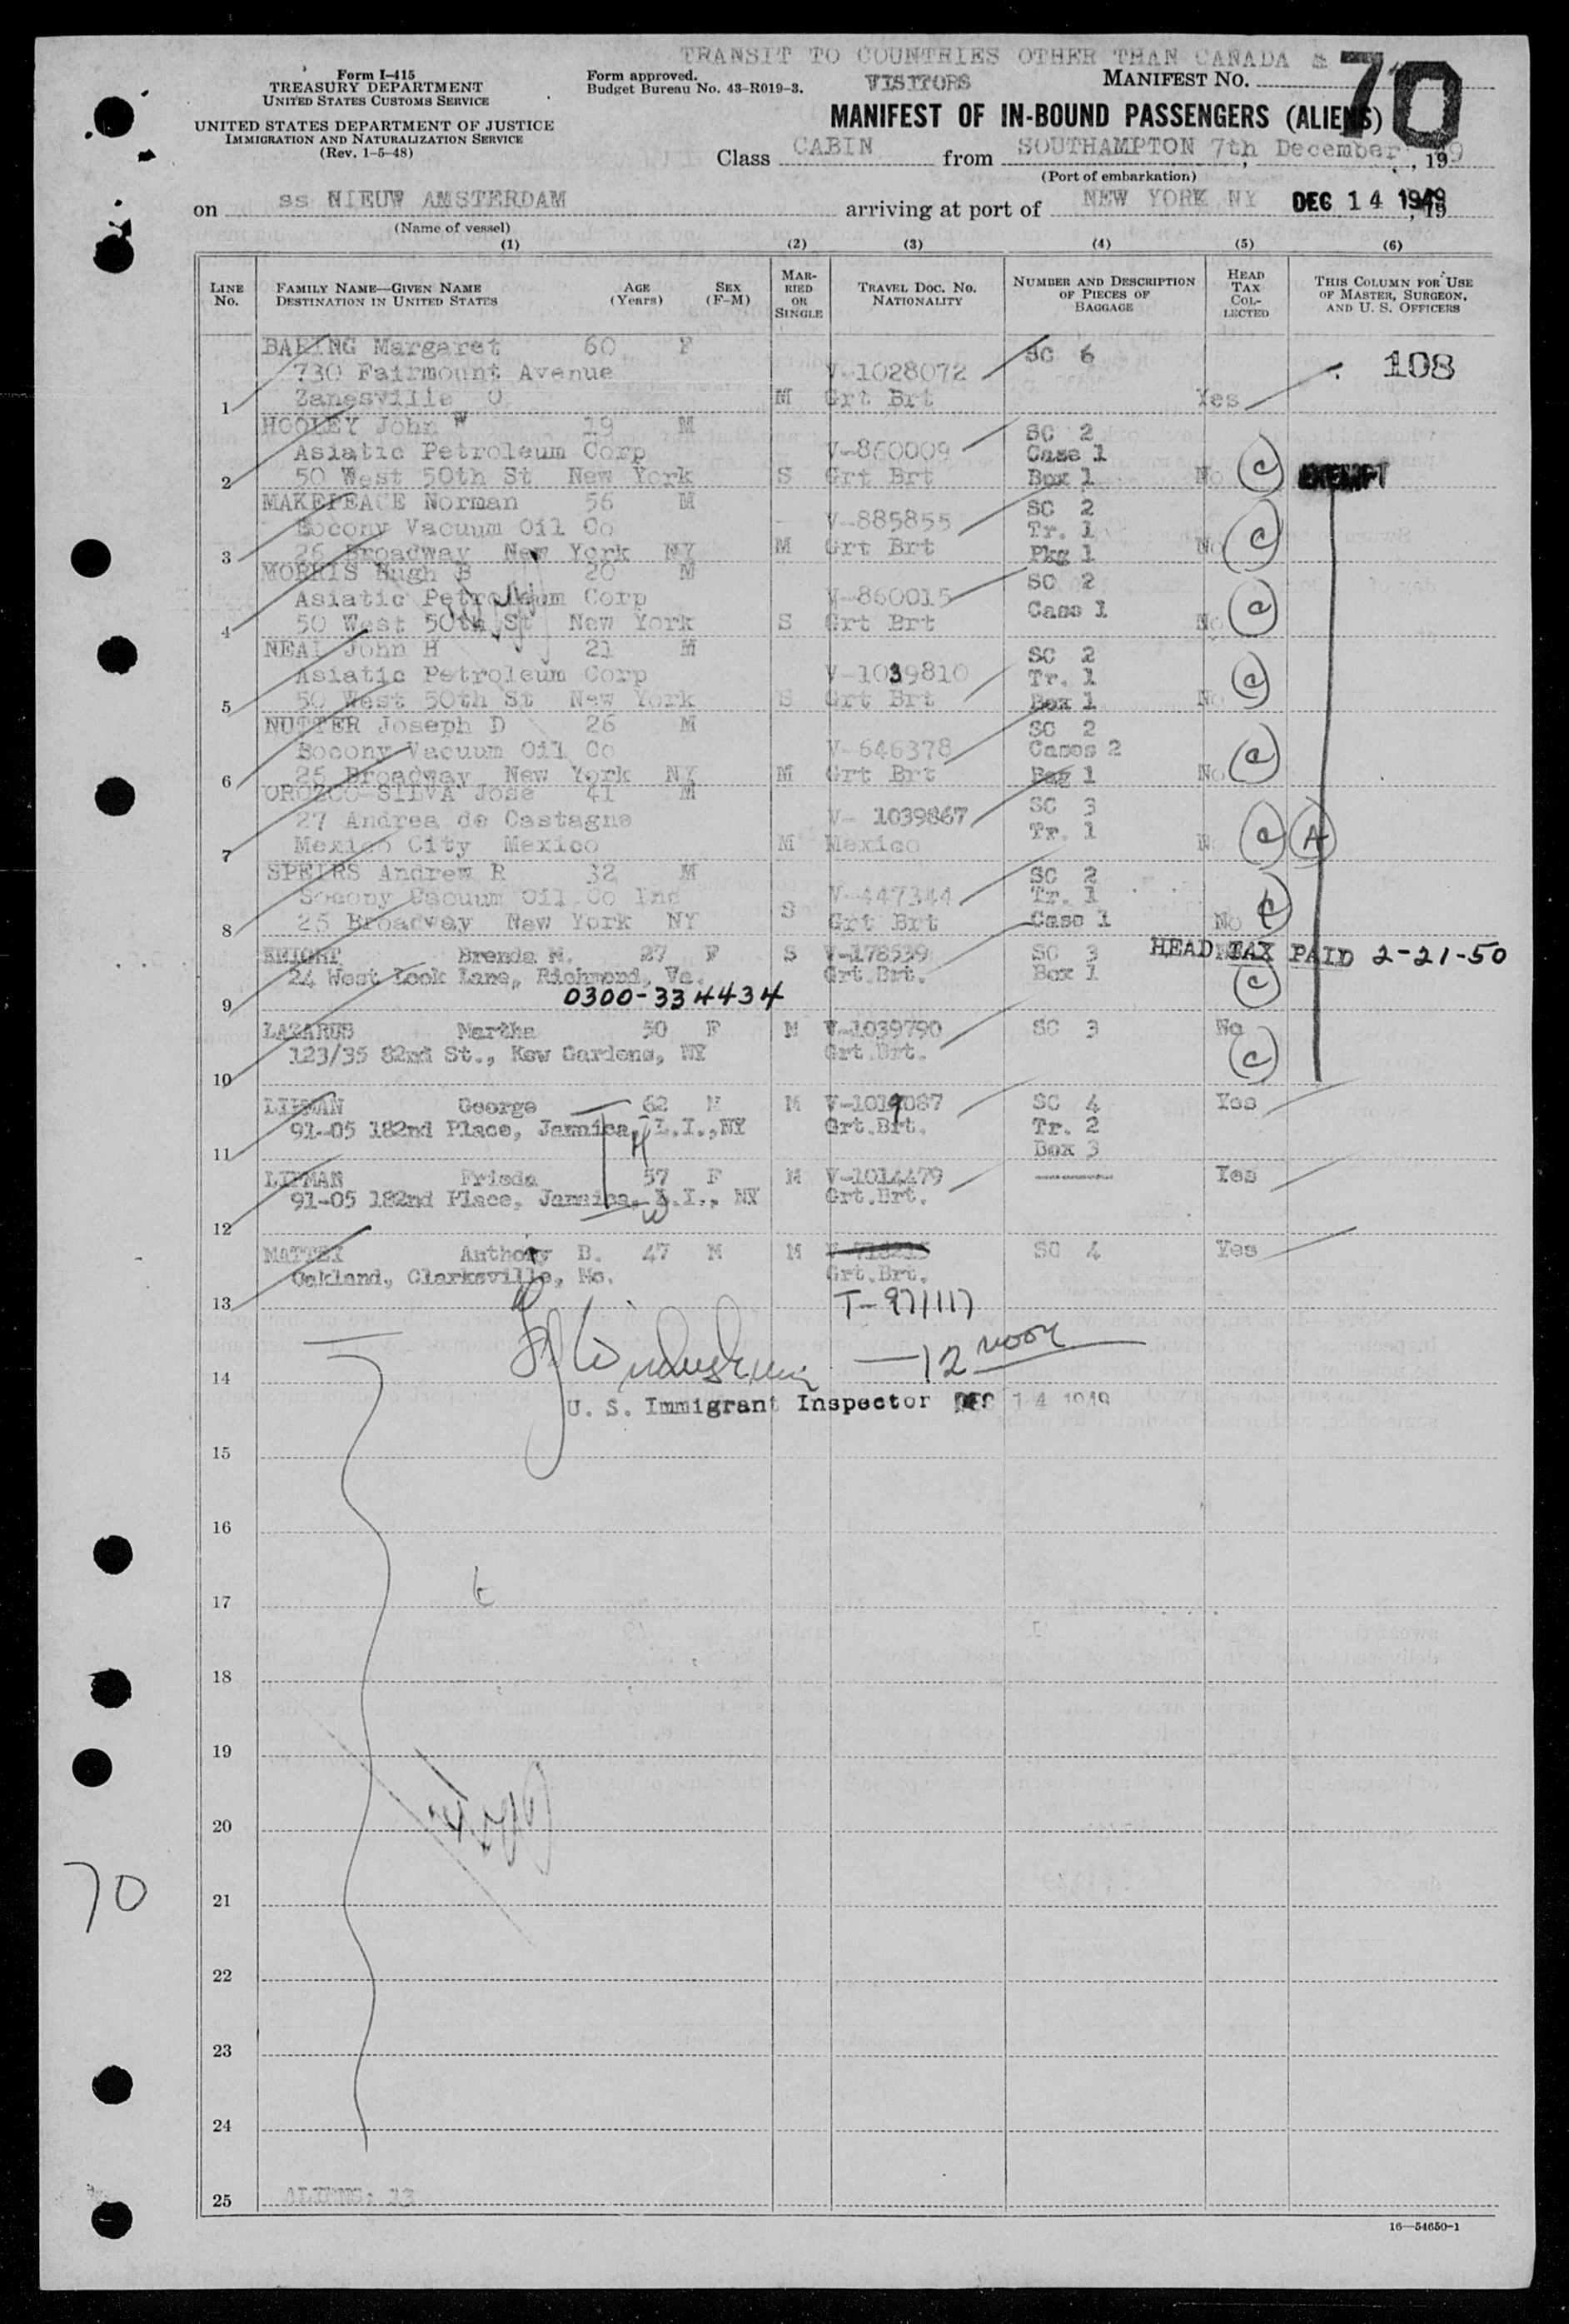 TRANSIT TO COUNTRIES OTHER THAN CANADA &
VISITORS
Form I-415
TREASURY DEPARTMENT
UNITED STATES CUSTOMS SERVICE
UNITED STATES DEPARTMENT OF JUSTICE
IMMIGRATION AND NATURALIZATION SERVICE
(Rev. 1-5-48)
Form approved.
Budget Bureau No. 43-R019-3.
MANIFEST NO. 70
MANIFEST OF IN-BOUND PASSENGERS (ALIENS)
Class CABIN from SOUTHAMPTON 7th December, 1949
(Port of embarkation)
on ss NIEUW AMSTERDAM arriving at port of NEW YORK NY DEC 14 1949, 19
(Name of vessel)
(1) (2) (3) (4) (5) (6)
LINE No.
FAMILY NAME—GIVEN NAME
DESTINATION IN UNITED STATES
AGE (Years)
SEX (F-M)
MARRIED OR SINGLE
TRAVEL DOC. NO. NATIONALITY
NUMBER AND DESCRIPTION OF PIECES OF BAGGAGE
HEAD TAX COLLECTED
THIS COLUMN FOR USE OF MASTER, SURGEON, AND U. S. OFFICERS
BARING Margaret 60 F SC 6 108
730 Fairmount Avenue V-1028072
1 Zanesville O M Grt Brt Yes
HOOLEY John W 19 M SC 2
Asiatic Petroleum Corp V-860009 Case 1
2 50 West 50th St New York S Grt Brt Box 1 No C EXEMPT
MAKEPEACE Norman 56 M SC 2
Socony Vacuum Oil Co V-885855 Tr. 1
3 26 Broadway New York NY M Grt Brt Pkg 1 No C
MORRIS Hugh B 20 M SC 2
Asiatic Petroleum Corp V-860015 Case 1
4 50 West 50th St New York S Grt Brt No C
NEAL John H 21 M SC 2
Asiatic Petroleum Corp V-1039810 Tr. 1
5 50 West 50th St New York S Grt Brt Box 1 No C
NUTTER Joseph D 26 M SC 2
Socony Vacuum Oil Co V-646378 Cases 2
6 26 Broadway New York NY M Grt Brt Bag 1 No C
OROZCO-SILVA Jose 41 M SC 3
27 Andrea de Castagne V- 1039867 Tr. 1
7 Mexico City Mexico M Mexico No C A
SPEIRS Andrew R 32 M SC 2
Socony Vacuum Oil Co Inc V-447344 Tr. 1
8 26 Broadway New York NY S Grt Brt Case 1 No C
KNIGHT Brenda M. 27 F S V-178539 SC 3 HEAD TAX PAID 2-21-50
24 West Lock Lane, Richmond, Va. Grt.Brt. Box 1 C
9 0300-334434
LAZARUS Martha 50 F M V-1039790 SC 3 No
123/35 82nd St., Kew Gardens, NY Grt.Brt. C
10
LIPMAN George 62 M M V-1019087 SC 4 Yes
91-05 182nd Place, Jamaica, L.I., NY Grt.Brt. Tr. 2
11 Box 3
LIPMAN Frieda 57 F M V-1014479 Yes
91-05 182nd Place, Jamaica, L.I., NY Grt.Brt.
12
MATTEI Anthony B. 47 M M SC 4 Yes
Oakland, Clarksville, Mo. Grt.Brt.
13 T-971117
14 12 noon
U. S. Immigrant Inspector DEC 14 1949
15
16
17
18
19
20
70
21
22
23
24
25 ALIENS: 13
16—54650-1